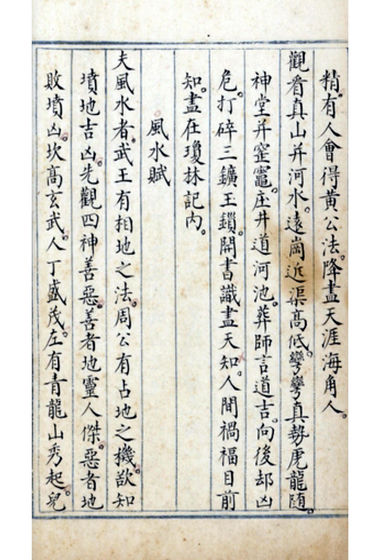 精。有人會得黃公法。降盡天涯海角人。
觀看真山并河水。遠崗近渠高低。彎彎真勢虎龍隨。
神堂并窰竈。庄井道河池。葬師言道吉。向後却凶
危。打碎三鑛王鎖。開書識盡天知。人間禍福目前
知。盡在瓊林記内。
風水賦
夫風水者。武王有相地之法。周公有占地之機。欲知
墳地吉凶。先觀四神善惡。善者地靈人傑。惡者地
敗墳凶。坎高玄武。人丁盛茂。左有青龍山秀起。兒